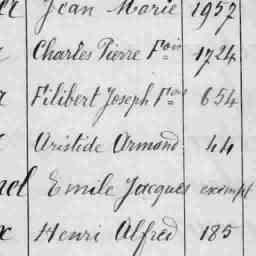 Jean Marie 1957
Charles Pierre Fois 1724
Filibert Joseph Fois 654
Aristide Armond 44
Emile Jacques exempt
Henri Alfred 185